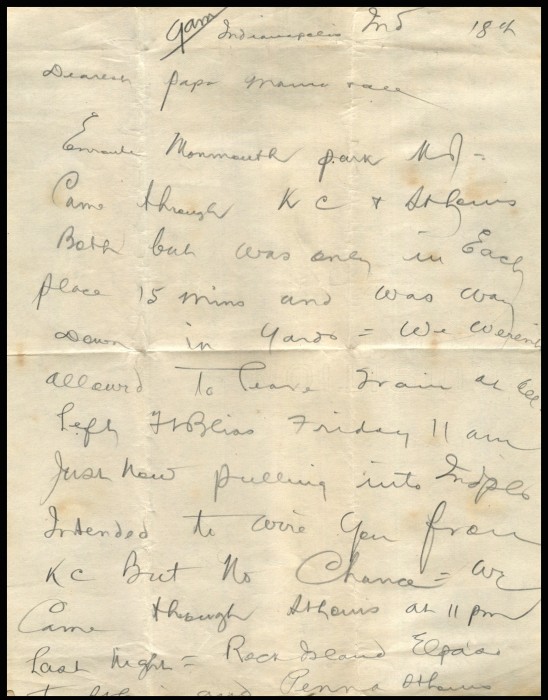 9am
Indianapolis Ind 18th
Dearest Papa Mama &
Enroute Monmouth park NJ =
Came through KC & St Louis
Both but was only in Each
place 15 mins and was way
Down in yards = We werent
allowed to leave train at all
Left Ft Bliss Friday 11 am
Just now pulling into Indpls
Intended to wire you from
KC But No Chance = We
Came through St Louis at 11 pm
Last Night = Rock Island Elpaso
to St Louis and Penna St Louis